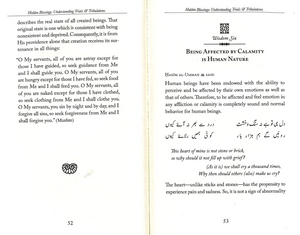 Hidden Blessings: Understanding Trials & Tribulations
describes the real state of all created beings. That
original state is one which is consistent with being
nonexistent and deprived. Consequently, it is from
His providence alone that creation receives its sus-
tenance in all things:
O My servants, all of you are astray except for
those I have guided, so seek guidance from Me
and I shall guide you. O My servants, all of you
are hungry except for those I have fed, so seek food
from Me and I shall feed you. O My servants, all
of you are naked except for those I have clothed,
so seek clothing from Me and I shall clothe you.
O My servants, you sin by night and by day, and I
forgive all sins, so seek forgiveness from Me and I
shall forgive you." (Muslim)
52
Hidden Blessings: Understanding Trials & Tribulations
Wisdom Six
Being Affected by Calamity
is Human Nature
Human beings have been endowed with the ability to
perceive and be affected by their own emotions as well as
that of others. Therefore, to be affected and feel emotion in
any affliction or calamity is completely sound and normal
behavior for human beings.
دل ہی تو ہے نہ سنگ و خشت درد سے بھر نہ آئے کیوں
روئیں گے ہم ہزار بار کوئی ہمیں رلائے کیوں
This heart of mine is not stone or brick,
so why should it not fill up with grief?
(As it is) we shall cry a thousand times,
Why then should others (also) make us cry?
The heart—unlike sticks and stones—has the propensity to
experience pain and sadness. So, it is not a sign of abnormality
53